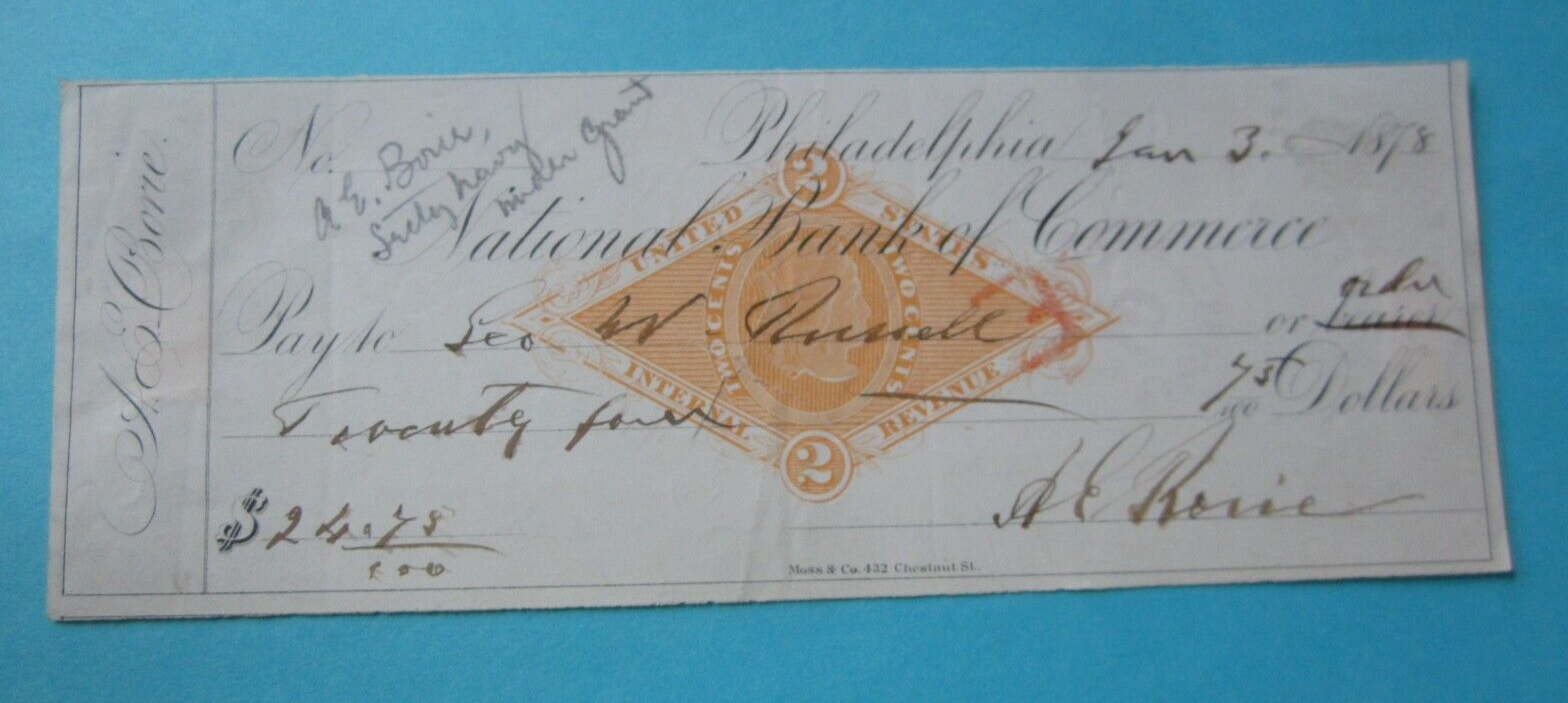 A. E. Borie.
No.
A E. Borie,
Sec'ty Navy
under Grant
Philadelphia Jan 3. 1878
National Bank of Commerce
Pay to Geo W Russell or bearer
order
Twenty four 75/100 Dollars
$24.75/100
A E Borie
Moss & Co. 432 Chestnut St.
2
UNITED STATES
TWO CENTS
TWO CENTS
INTERNAL REVENUE
2